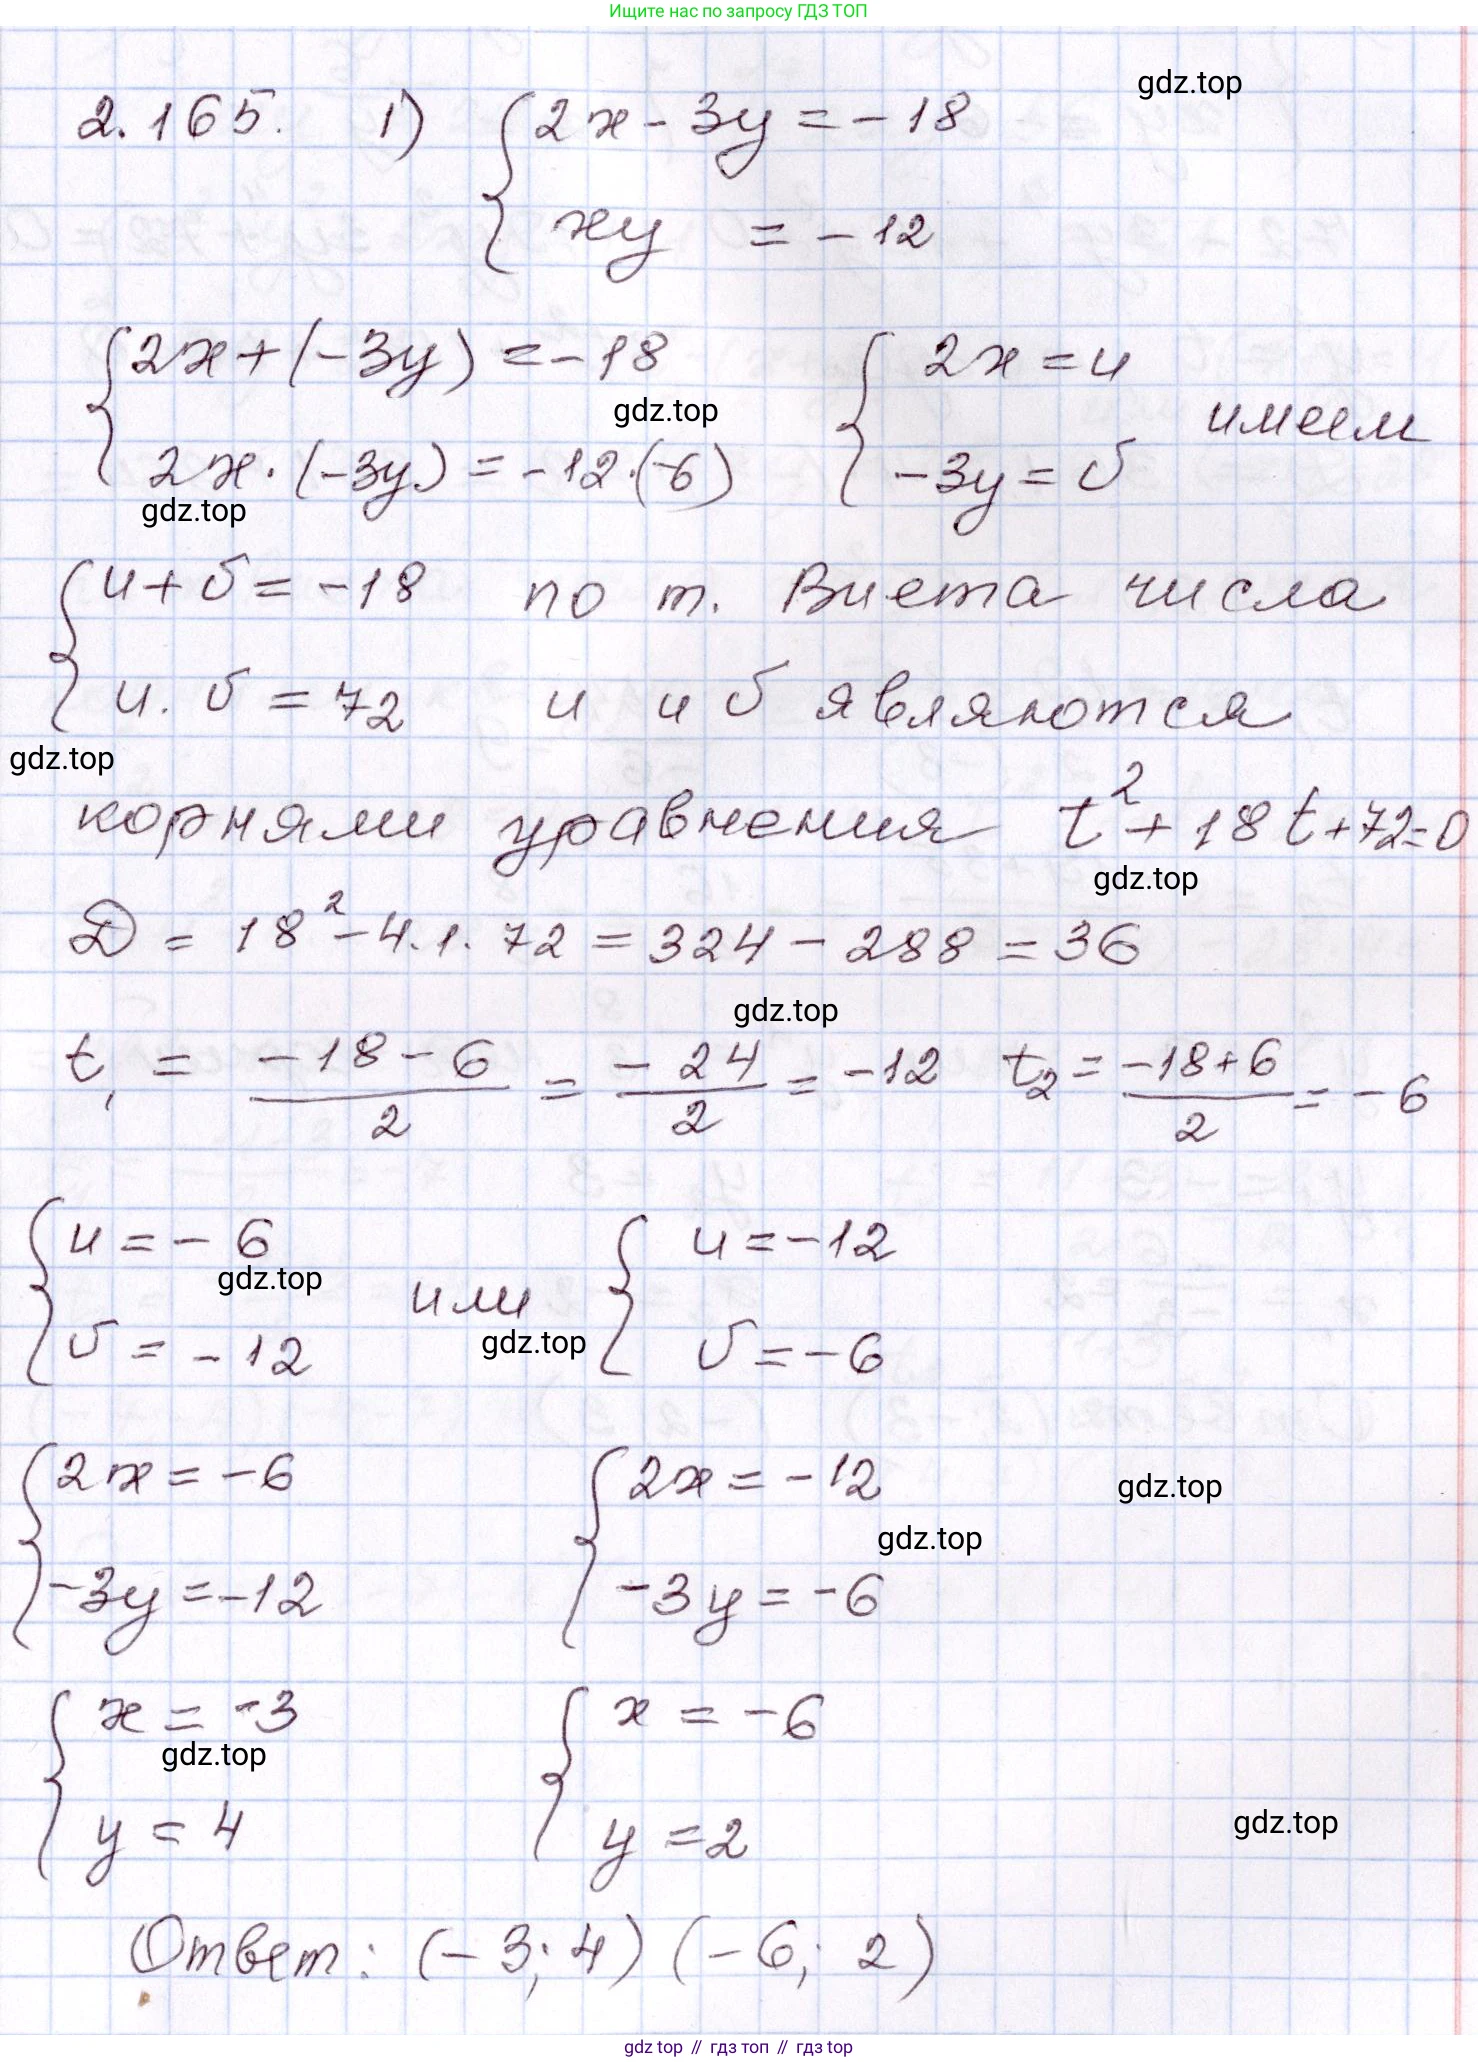 Ищите нас по запросу ГДЗ ТОП
gdz.top
2.165. 1) { 2x - 3y = -18
xy = -12
{ 2x + (-3y) = -18 { 2x = u
gdz.top имеем
2x · (-3y) = -12 · (-6) -3y = v
gdz.top
{ u + v = -18 по т. Виета числа
u · v = 72 u и v являются
gdz.top
корнями уравнения t² + 18t + 72 = 0
gdz.top
D = 18² - 4 · 1 · 72 = 324 - 288 = 36
gdz.top
t₁ = (-18 - 6)/2 = -24/2 = -12 t₂ = (-18 + 6)/2 = -6
{ u = -6 { u = -12
gdz.top или
gdz.top
v = -12 v = -6
{ 2x = -6 { 2x = -12
gdz.top
gdz.top
-3y = -12 -3y = -6
{ x = -3 { x = -6
gdz.top
y = 4 y = 2
gdz.top
Ответ: (-3; 4) (-6; 2)
gdz top // гдз топ // гдз top